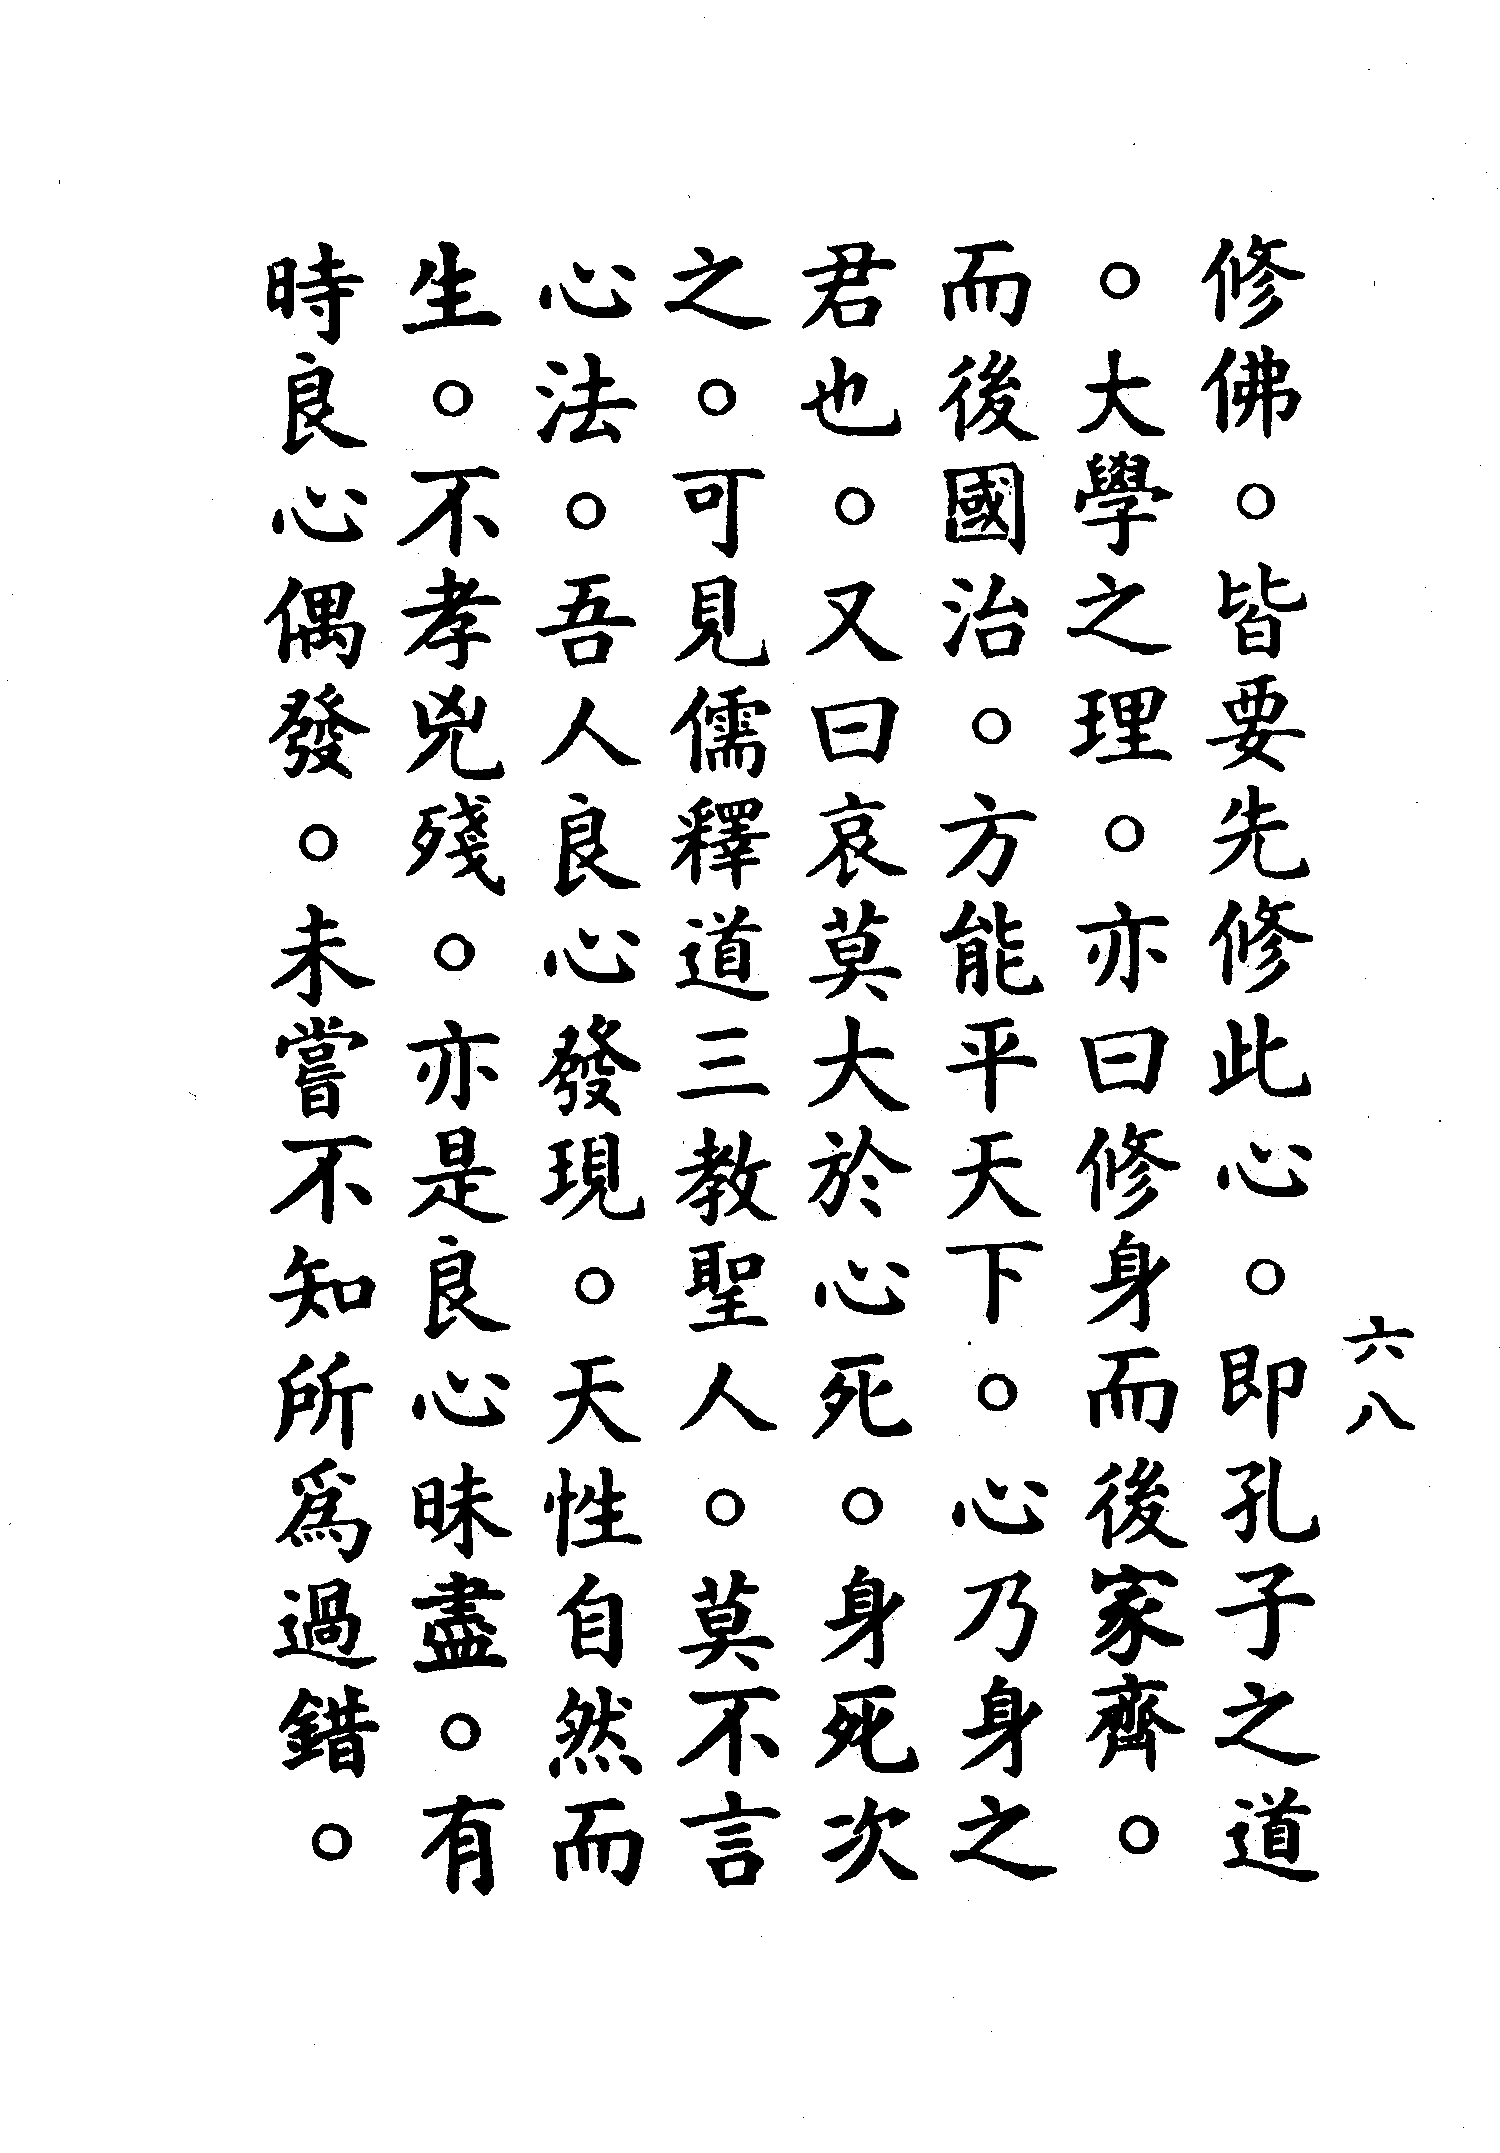 六八
修佛。皆要先修此心。即孔子之道
。大學之理。亦曰修身而後家齊。
而後國治。方能平天下。心乃身之
君也。又曰哀莫大於心死。身死次
之。可見儒釋道三教聖人。莫不言
心法。吾人良心發現。天性自然而
生。不孝兇殘。亦是良心昧盡。有
時良心偶發。未嘗不知所為過錯。